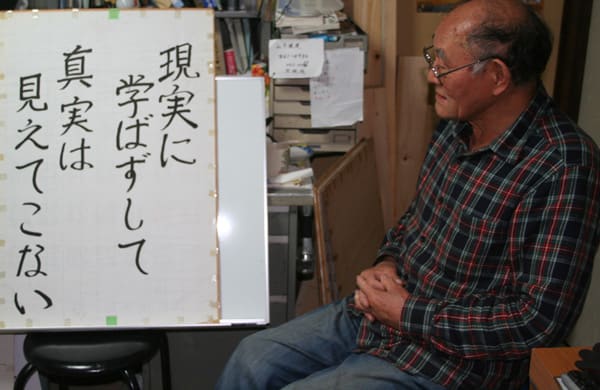 現実に
学ばずして
真実は
見えてこない